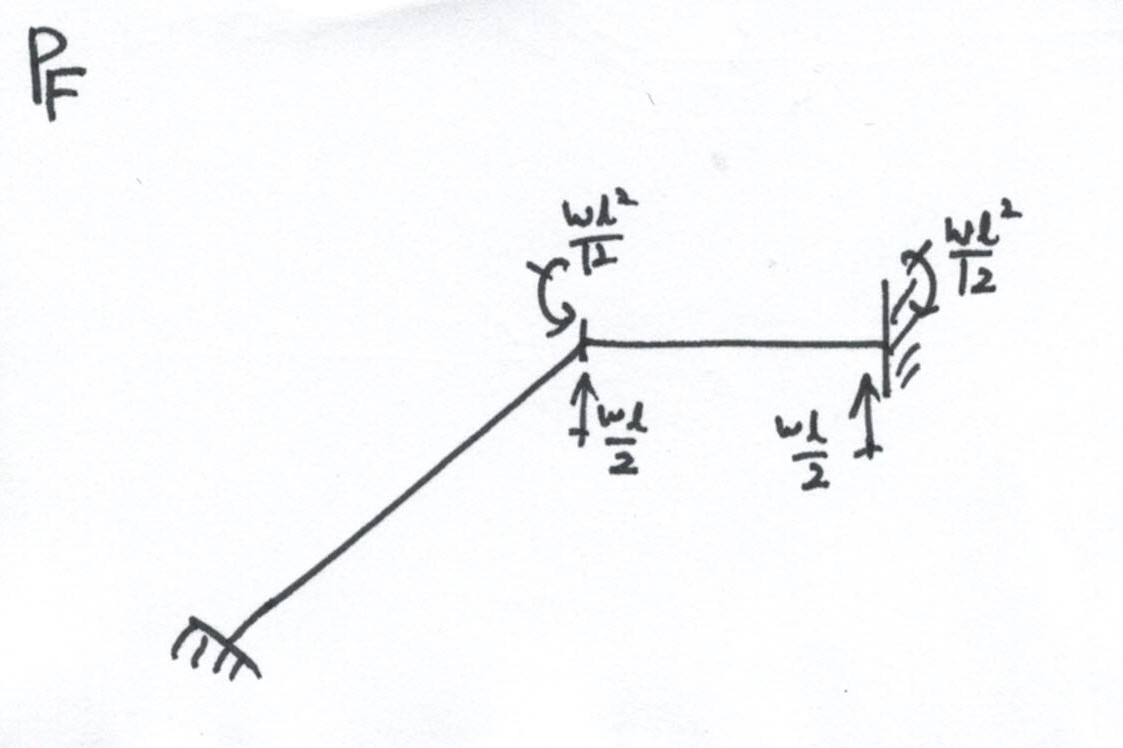 P_F
wl²/12
wl²/12
wl/2
wl/2